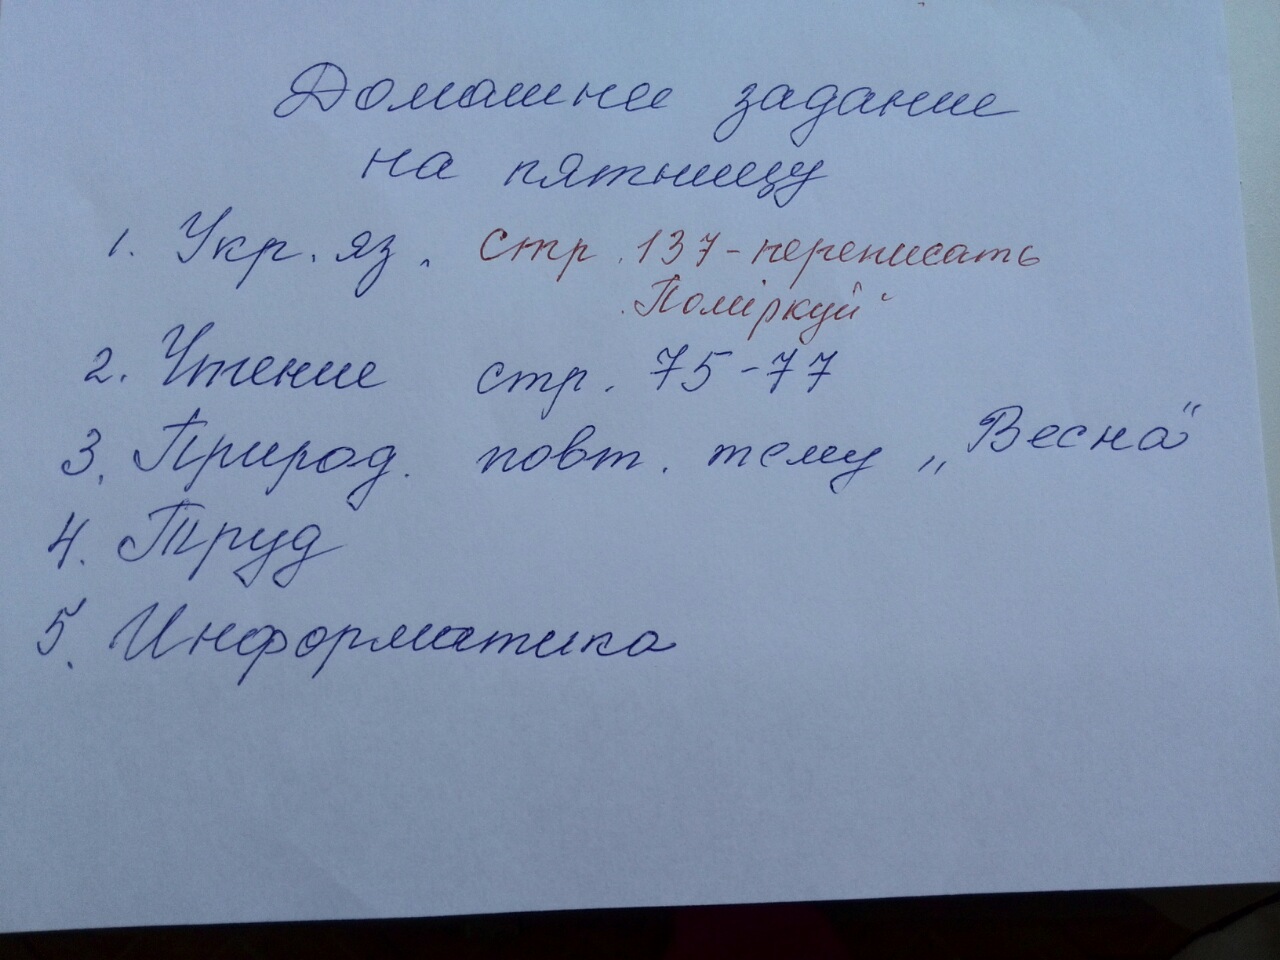 Домашнее задание
на пятницу
1. Укр. яз. стр. 137 - переписать
"Поміркуй"
2. Чтение стр. 75-77
3. Природ. повт. тему „Весна"
4. Труд
5. Информатика